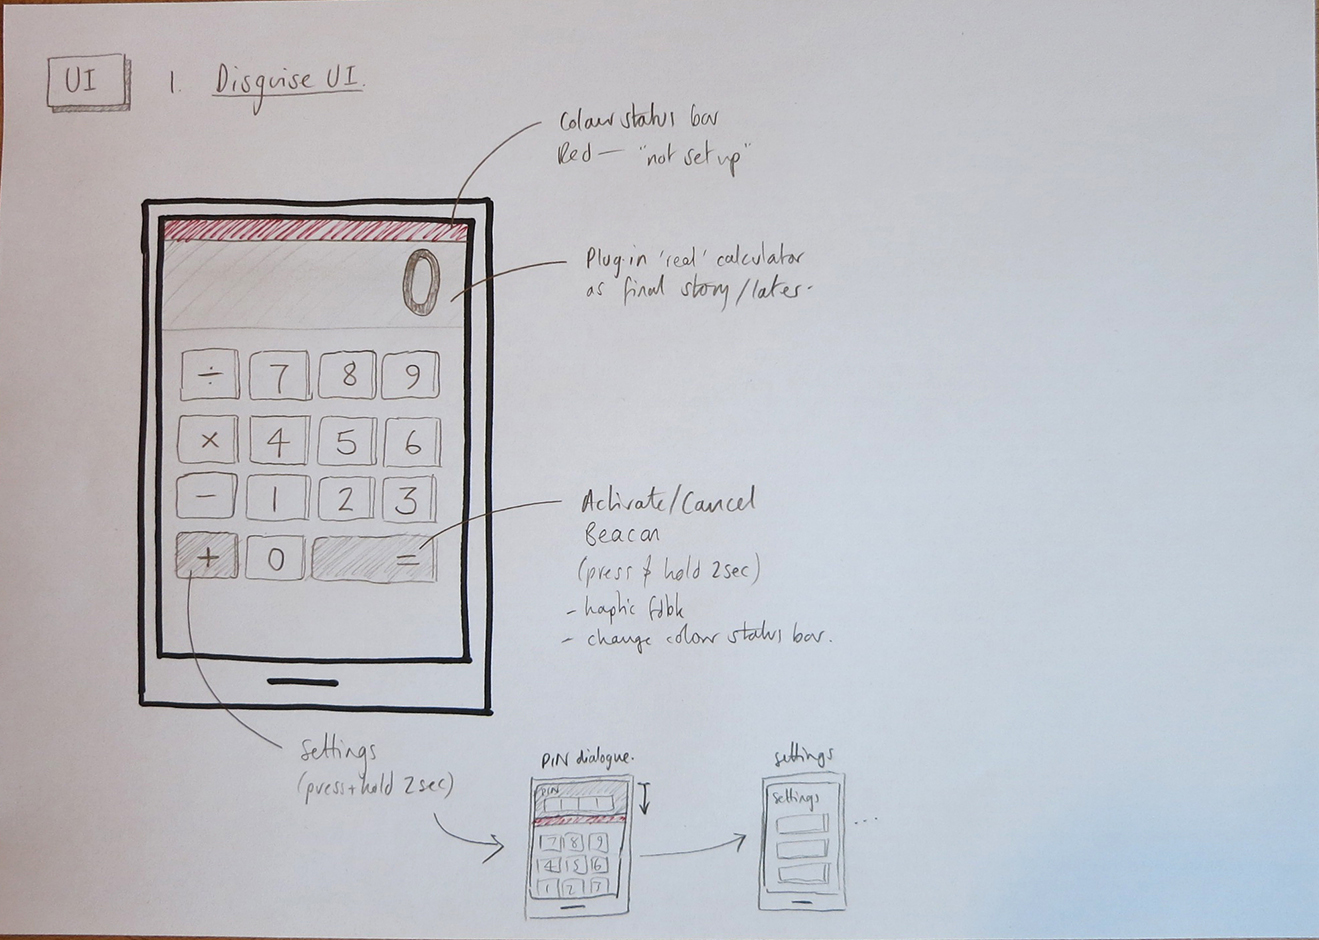 UI
1. Disguise UI.
Colour status bar
Red — "not set up"
0
Plug-in 'real' calculator
as final story/later.
÷ 7 8 9
× 4 5 6
− 1 2 3
+ 0 =
Activate/Cancel
Beacon
(press & hold 2sec)
- haptic fdbk
- change colour status bar.
Settings
(press + hold 2sec)
PIN dialogue.
PIN
7 8 9
4 5 6
1 2 3
settings
Settings
...